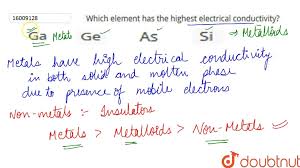 16009128
Which element has the highest electrical conductivity?
Ga Metals Ge As Si → Metalloids
Metals have high electrical conductivity
in both solid and molten phase
due to presence of mobile electrons
Non-metals :- Insulators
Metals > Metalloids > Non-Metals
doubtnut